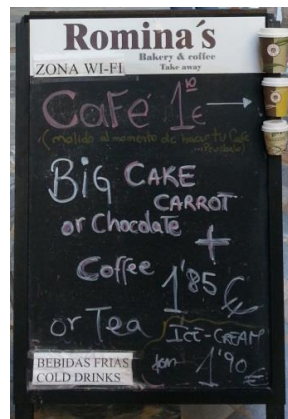 Romina´s
Bakery & coffee
Take away
ZONA WI-FI
CaFé 1'10 €
(molido al momento de hacer tu Café
...Pruebalo)
BiG CAKE
CARROT
or Chocolate
+
Coffee
1'85 €
or Tea
ICE-CREAM
from 1'90 €
BEBIDAS FRIAS
COLD DRINKS